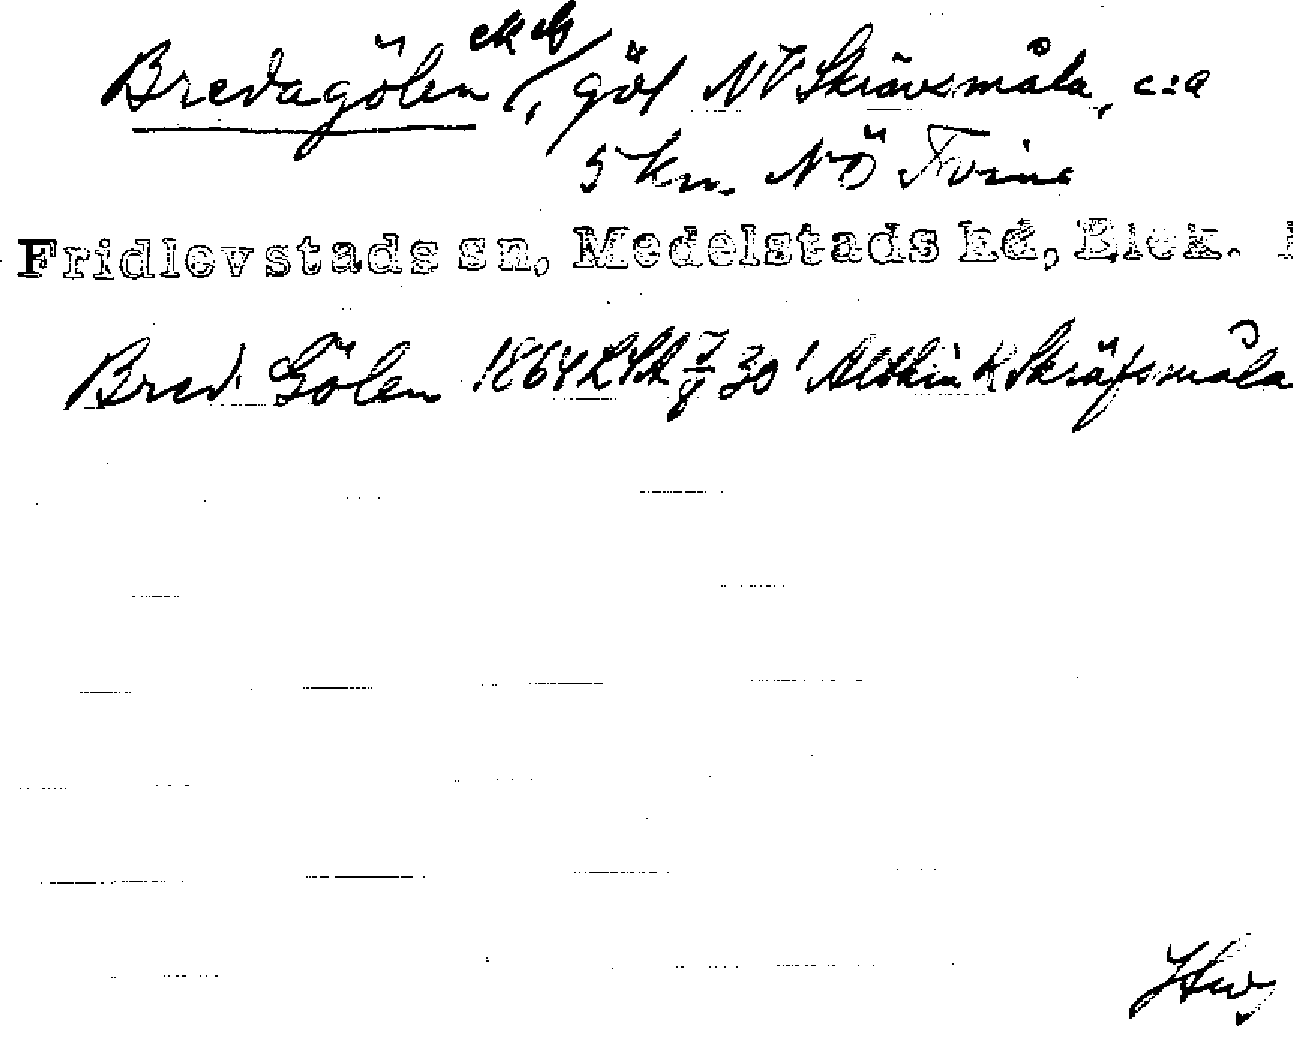 Bredagölen ek eb/, göl NV Skrävsmåla, c:a
5 km NÖ Tving
Fridlevstads sn, Medelstads hd, Blek. l
Bred Gölen 1864 LSA 7/8 30 1 Skräfsmåla